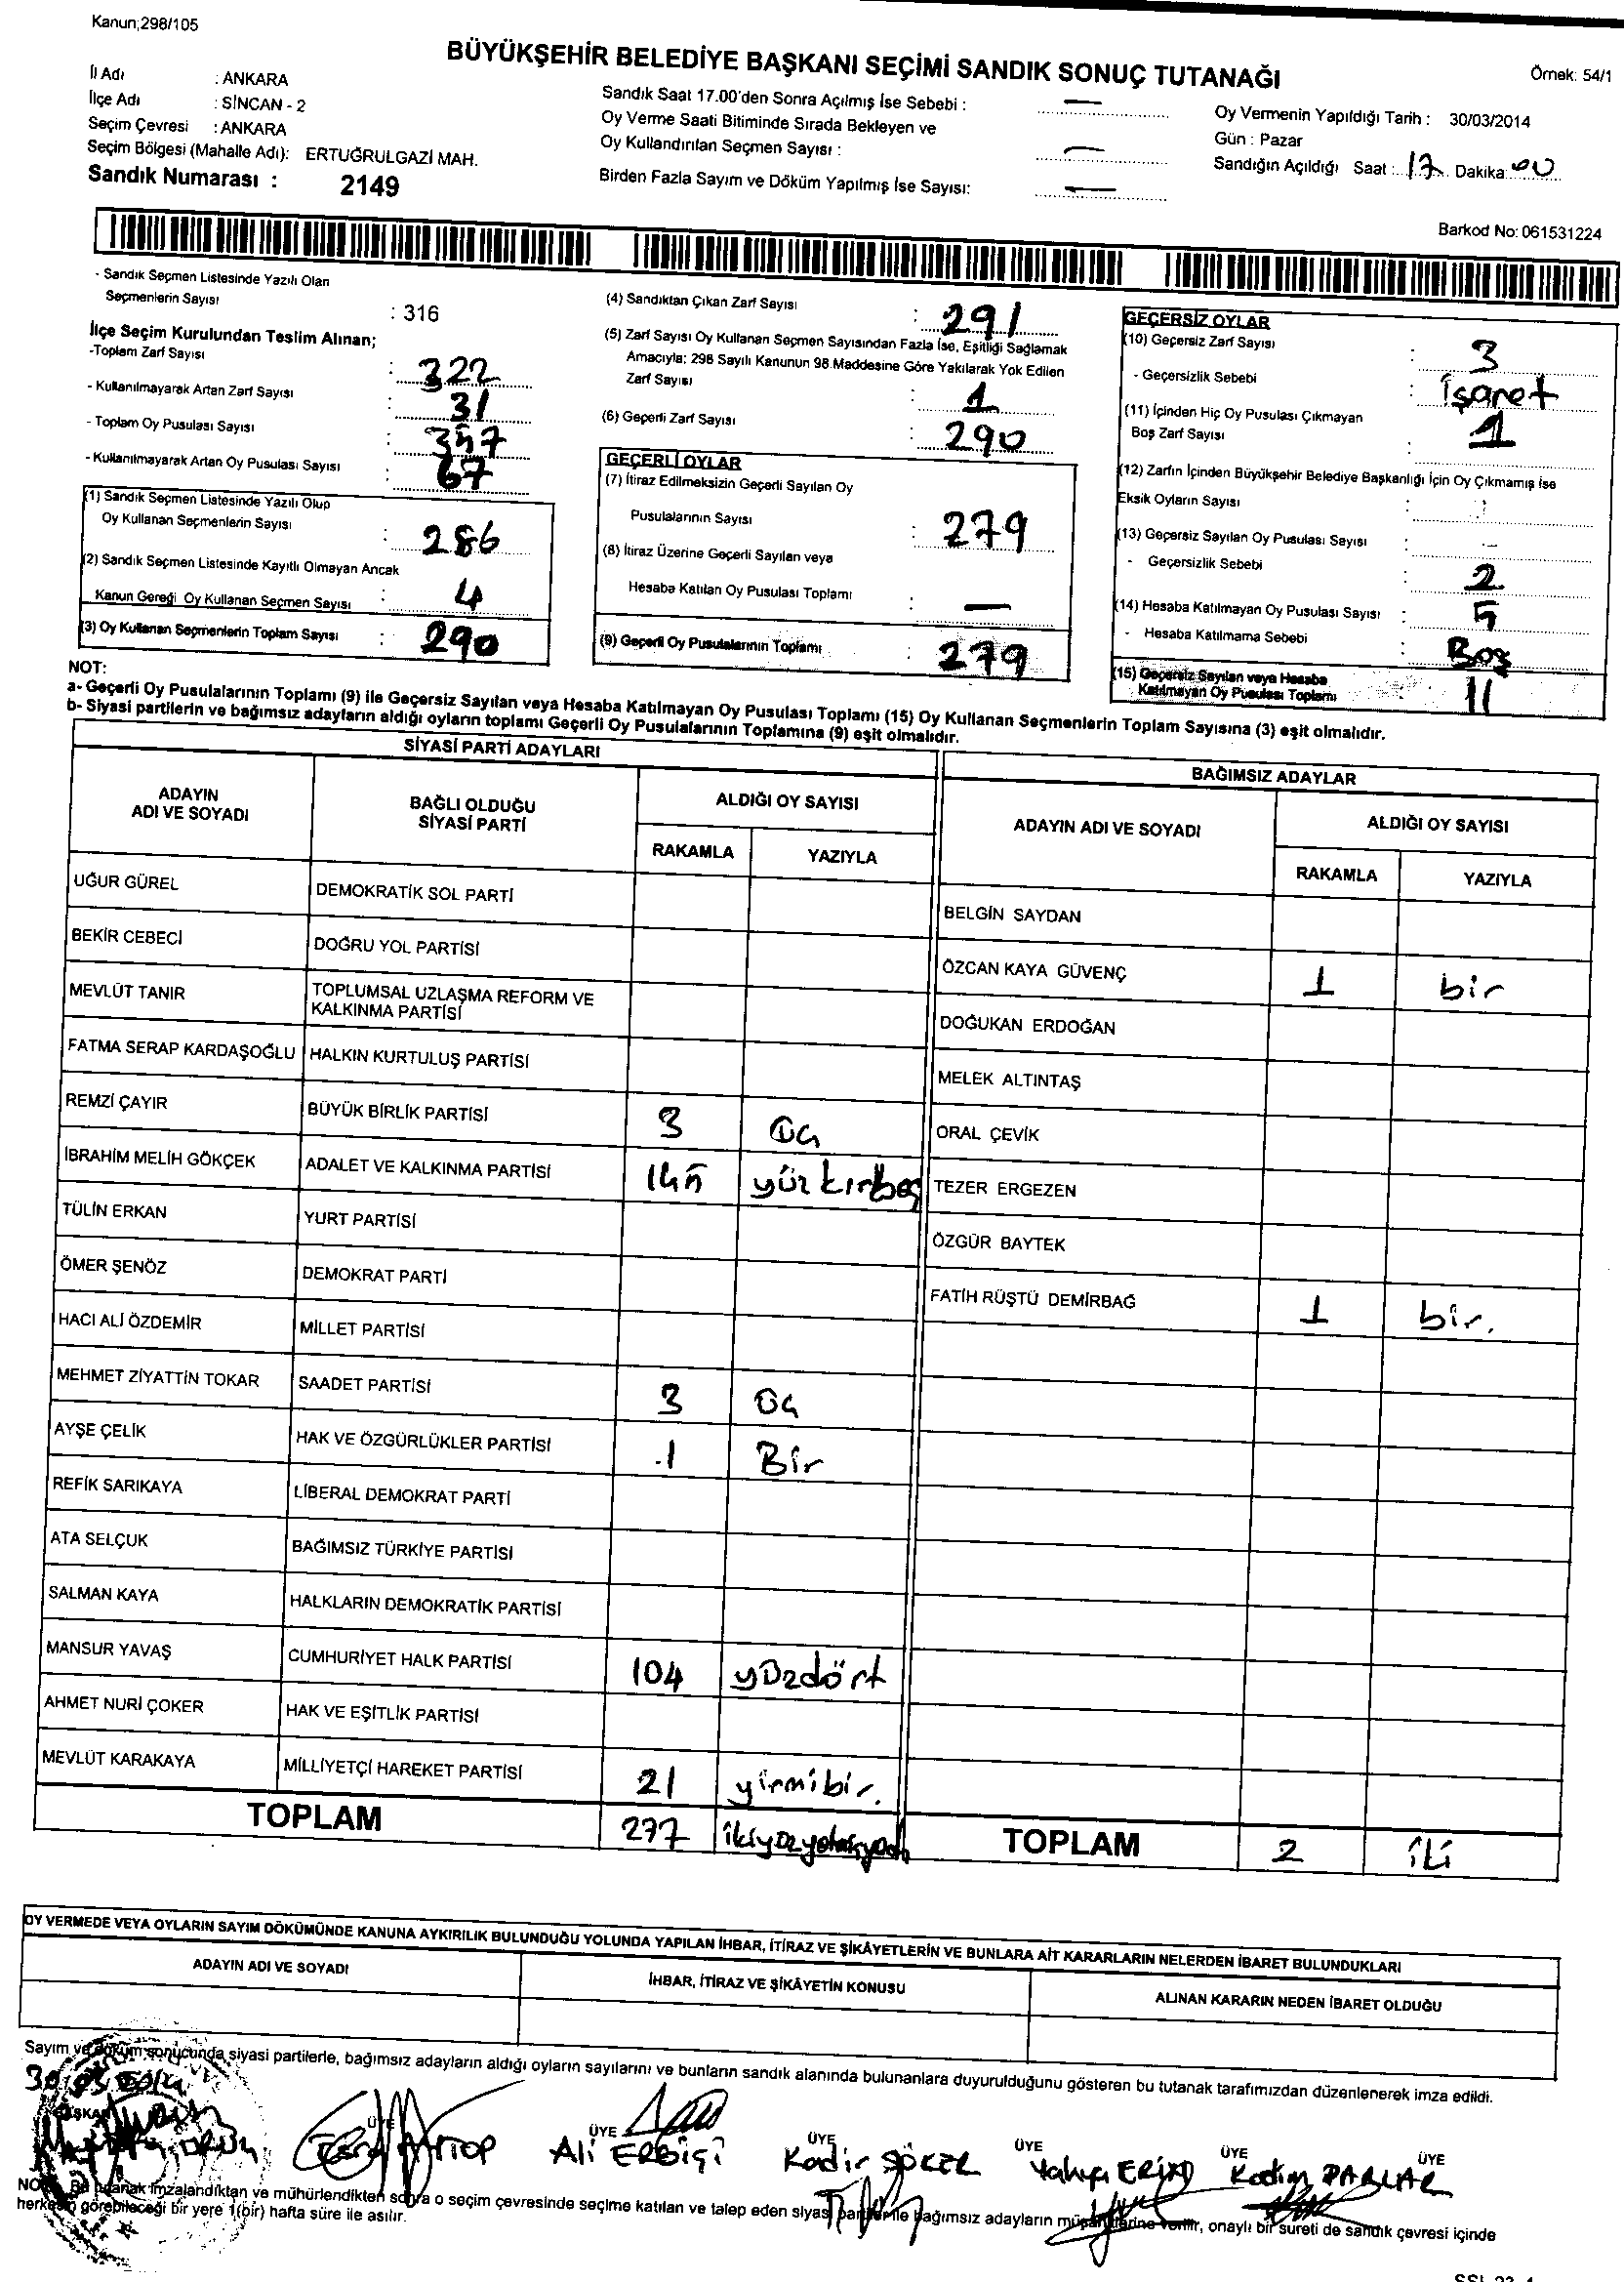 Kanun;298/105
BÜYÜKŞEHİR BELEDİYE BAŞKANI SEÇİMİ SANDIK SONUÇ TUTANAĞI
Örnek: 54/1
İl Adı : ANKARA
İlçe Adı : SİNCAN - 2
Seçim Çevresi : ANKARA
Seçim Bölgesi (Mahalle Adı): ERTUĞRULGAZİ MAH.
Sandık Numarası : 2149
Sandık Saat 17.00'den Sonra Açılmış İse Sebebi : —
Oy Verme Saati Bitiminde Sırada Bekleyen ve
Oy Kullandırılan Seçmen Sayısı : —
Birden Fazla Sayım ve Döküm Yapılmış İse Sayısı: —
Oy Vermenin Yapıldığı Tarih : 30/03/2014
Gün : Pazar
Sandığın Açıldığı Saat : 17 Dakika: 00
Barkod No: 061531224
- Sandık Seçmen Listesinde Yazılı Olan
Seçmenlerin Sayısı : 316
İlçe Seçim Kurulundan Teslim Alınan;
-Toplam Zarf Sayısı : 322
- Kullanılmayarak Artan Zarf Sayısı : 31
- Toplam Oy Pusulası Sayısı : 357
- Kullanılmayarak Artan Oy Pusulası Sayısı : 67
(1) Sandık Seçmen Listesinde Yazılı Olup
Oy Kullanan Seçmenlerin Sayısı : 286
(2) Sandık Seçmen Listesinde Kayıtlı Olmayan Ancak
Kanun Gereği Oy Kullanan Seçmen Sayısı : 4
(3) Oy Kullanan Seçmenlerin Toplam Sayısı : 290
(4) Sandıktan Çıkan Zarf Sayısı : 291
(5) Zarf Sayısı Oy Kullanan Seçmen Sayısından Fazla İse, Eşitliği Sağlamak
Amacıyla: 298 Sayılı Kanunun 98.Maddesine Göre Yakılarak Yok Edilen
Zarf Sayısı : 1
(6) Geçerli Zarf Sayısı : 290
GEÇERLİ OYLAR
(7) İtiraz Edilmeksizin Geçerli Sayılan Oy
Pusulalarının Sayısı : 279
(8) İtiraz Üzerine Geçerli Sayılan veya
Hesaba Katılan Oy Pusulası Toplamı : —
(9) Geçerli Oy Pusulalarının Toplamı : 279
GEÇERSİZ OYLAR
(10) Geçersiz Zarf Sayısı : 3
- Geçersizlik Sebebi : işaret
(11) İçinden Hiç Oy Pusulası Çıkmayan
Boş Zarf Sayısı : 1
(12) Zarfın İçinden Büyükşehir Belediye Başkanlığı İçin Oy Çıkmamış ise
Eksik Oyların Sayısı :
(13) Geçersiz Sayılan Oy Pusulası Sayısı : -
- Geçersizlik Sebebi : 2
(14) Hesaba Katılmayan Oy Pusulası Sayısı : 5
- Hesaba Katılmama Sebebi : Boş
(15) Geçersiz Sayılan veya Hesaba
Katılmayan Oy Pusulası Toplamı : 11
NOT:
a- Geçerli Oy Pusulalarının Toplamı (9) ile Geçersiz Sayılan veya Hesaba Katılmayan Oy Pusulası Toplamı (15) Oy Kullanan Seçmenlerin Toplam Sayısına (3) eşit olmalıdır.
b- Siyasi partilerin ve bağımsız adayların aldığı oyların toplamı Geçerli Oy Pusulalarının Toplamına (9) eşit olmalıdır.
SİYASİ PARTİ ADAYLARI
ADAYIN ADI VE SOYADI BAĞLI OLDUĞU SİYASİ PARTİ ALDIĞI OY SAYISI
RAKAMLA YAZIYLA
UĞUR GÜREL DEMOKRATİK SOL PARTİ
BEKİR CEBECİ DOĞRU YOL PARTİSİ
MEVLÜT TANIR TOPLUMSAL UZLAŞMA REFORM VE KALKINMA PARTİSİ
FATMA SERAP KARDAŞOĞLU HALKIN KURTULUŞ PARTİSİ
REMZİ ÇAYIR BÜYÜK BİRLİK PARTİSİ 3 üç
İBRAHİM MELİH GÖKÇEK ADALET VE KALKINMA PARTİSİ 145 yüzkırbeş
TÜLİN ERKAN YURT PARTİSİ
ÖMER ŞENÖZ DEMOKRAT PARTİ
HACI ALİ ÖZDEMİR MİLLET PARTİSİ
MEHMET ZİYATTİN TOKAR SAADET PARTİSİ 3 üç
AYŞE ÇELİK HAK VE ÖZGÜRLÜKLER PARTİSİ 1 Bir
REFİK SARIKAYA LİBERAL DEMOKRAT PARTİ
ATA SELÇUK BAĞIMSIZ TÜRKİYE PARTİSİ
SALMAN KAYA HALKLARIN DEMOKRATİK PARTİSİ
MANSUR YAVAŞ CUMHURİYET HALK PARTİSİ 104 yüzdört
AHMET NURİ ÇOKER HAK VE EŞİTLİK PARTİSİ
MEVLÜT KARAKAYA MİLLİYETÇİ HAREKET PARTİSİ 21 yirmibir.
TOPLAM 277
BAĞIMSIZ ADAYLAR
ADAYIN ADI VE SOYADI ALDIĞI OY SAYISI
RAKAMLA YAZIYLA
BELGİN SAYDAN
ÖZCAN KAYA GÜVENÇ 1 bir
DOĞUKAN ERDOĞAN
MELEK ALTINTAŞ
ORAL ÇEVİK
TEZER ERGEZEN
ÖZGÜR BAYTEK
FATİH RÜŞTÜ DEMİRBAĞ 1 bir.
TOPLAM 2 iki
OY VERMEDE VEYA OYLARIN SAYIM DÖKÜMÜNDE KANUNA AYKIRILIK BULUNDUĞU YOLUNDA YAPILAN İHBAR, İTİRAZ VE ŞİKÂYETLERİN VE BUNLARA AİT KARARLARIN NELERDEN İBARET BULUNDUKLARI
ADAYIN ADI VE SOYADI İHBAR, İTİRAZ VE ŞİKÂYETİN KONUSU ALINAN KARARIN NEDEN İBARET OLDUĞU
Sayım ve döküm sonucunda siyasi partilerle, bağımsız adayların aldığı oyların sayılarını ve bunların sandık alanında bulunanlara duyurulduğunu gösteren bu tutanak tarafımızdan düzenlenerek imza edildi.
30.03.2014
BAŞKAN ÜYE ÜYE ÜYE ÜYE ÜYE ÜYE
Ali ERBİGİ Kadir ŞÖKER Yahya Kadim PARLAR
NOT: Bu tutanak imzalandıktan ve mühürlendikten sonra o seçim çevresinde seçime katılan ve talep eden siyasi partiler ile bağımsız adayların müşahitlerine verilir, onaylı bir sureti de sandık çevresi içinde
herkesin görebileceği bir yere 1(bir) hafta süre ile asılır.